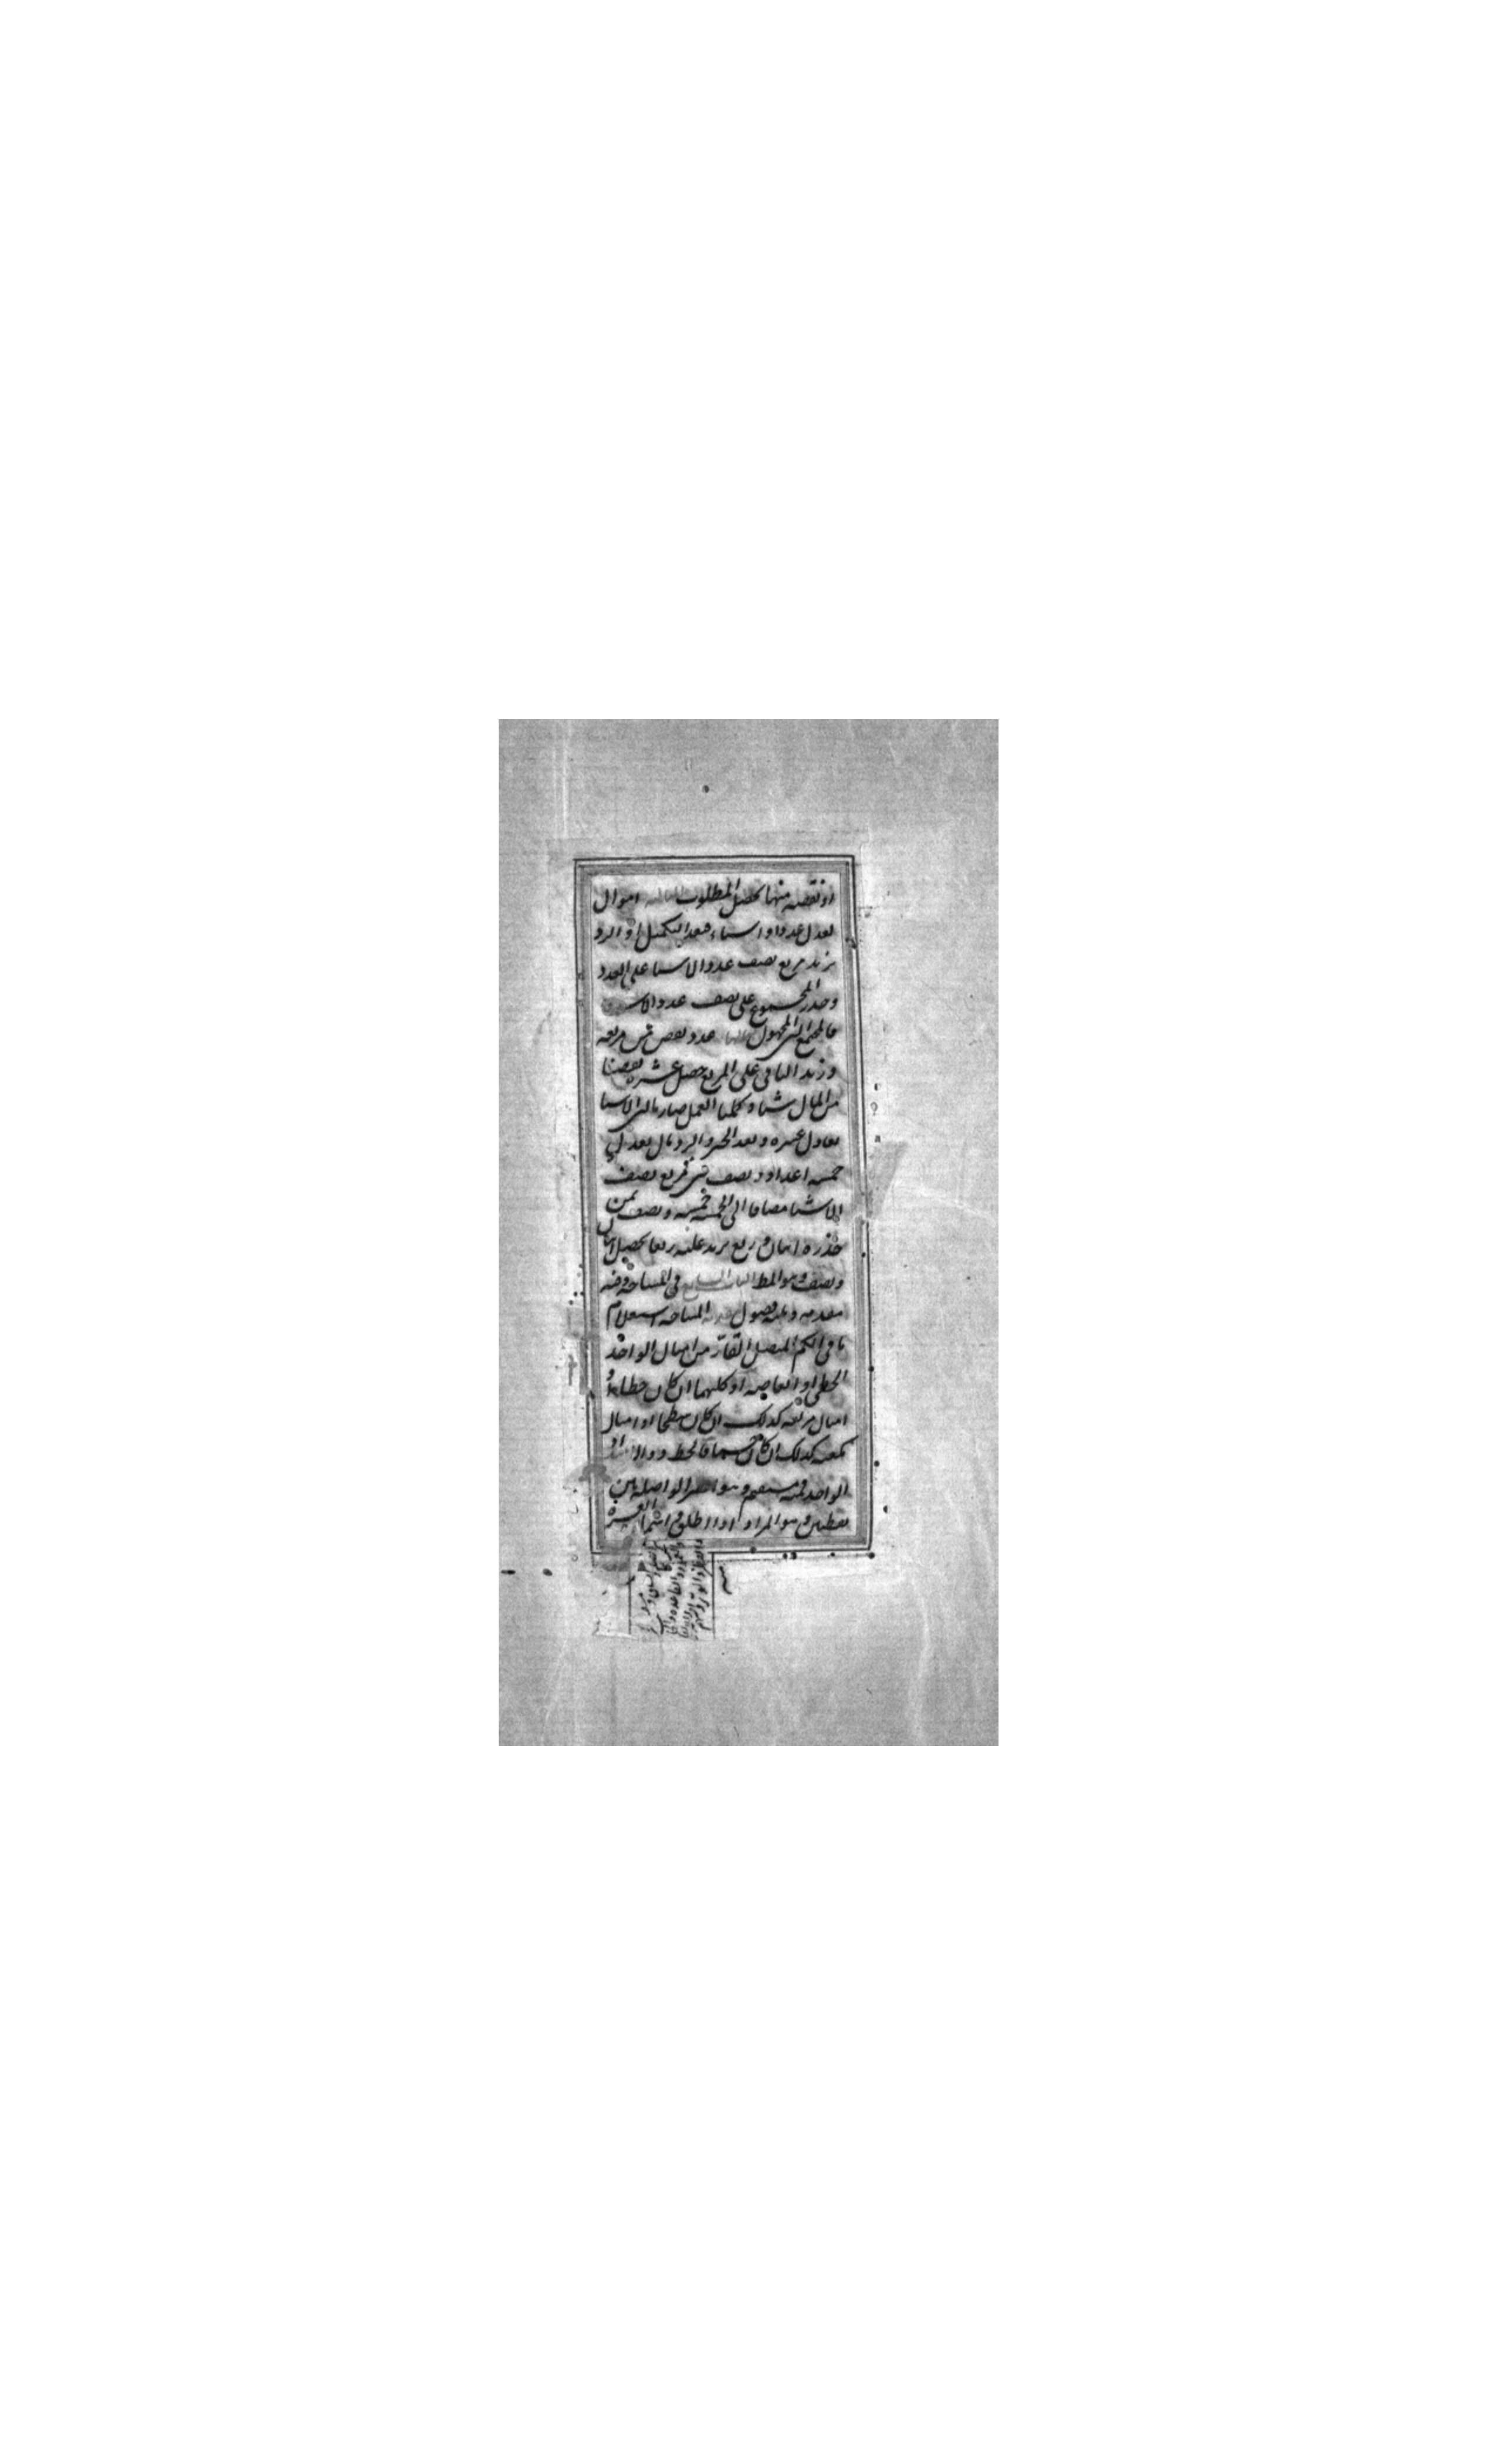 او نقصه منها يحصل المطلوب الثالثه اموال
تعدل عددا و اشياء فبعد التكميل او الرد
تزيد مربع نصف عدد الاشيا على العدد
و جذر المجموع على نصف عدد الاشيا
فالمجتمع الشى المجهول مثالها عدد نقص من مربعه
و زيد الباقى على المربع حصل عشره نقصنا
من المال شيا و كملنا العمل صار مالين الا شيا
تعادل عشره و بعد الجبر و الرد مال يعدل
خمسه اعداد و نصف شى فربع نصف
الاشيا مضافا الى الخمسه خمسه و نصف ثمن
جذره اثنان و ربع تزيد عليه ربعا يحصل اثنان
و نصف و هو المط الباب السابع فى المساحه و فيه
مقدمه و ثلثه فصول مقدمه المساحه استعلام
ما فى الكم المتصل القار من امثال الواحد
الخطى او ابعاضه او كليهما ان كان خطا او
امثال مربعه كذلك ان كان سطحا او امثال
مكعبه كذلك ان كان جسما فالخط ذو الامتداد
الواحد فمنه مستقيم و هو اقصر الواصله بين
نقطتين و هو المراد اذا اطلق و اسماه العشره